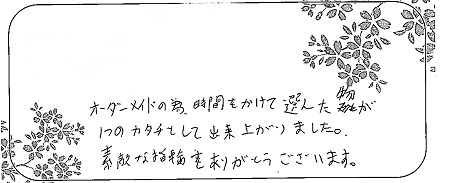 オーダーメイドの為、時間をかけて選んだ物が
1つのカタチとして出来上がりました。
素敵な指輪をありがとうございます。